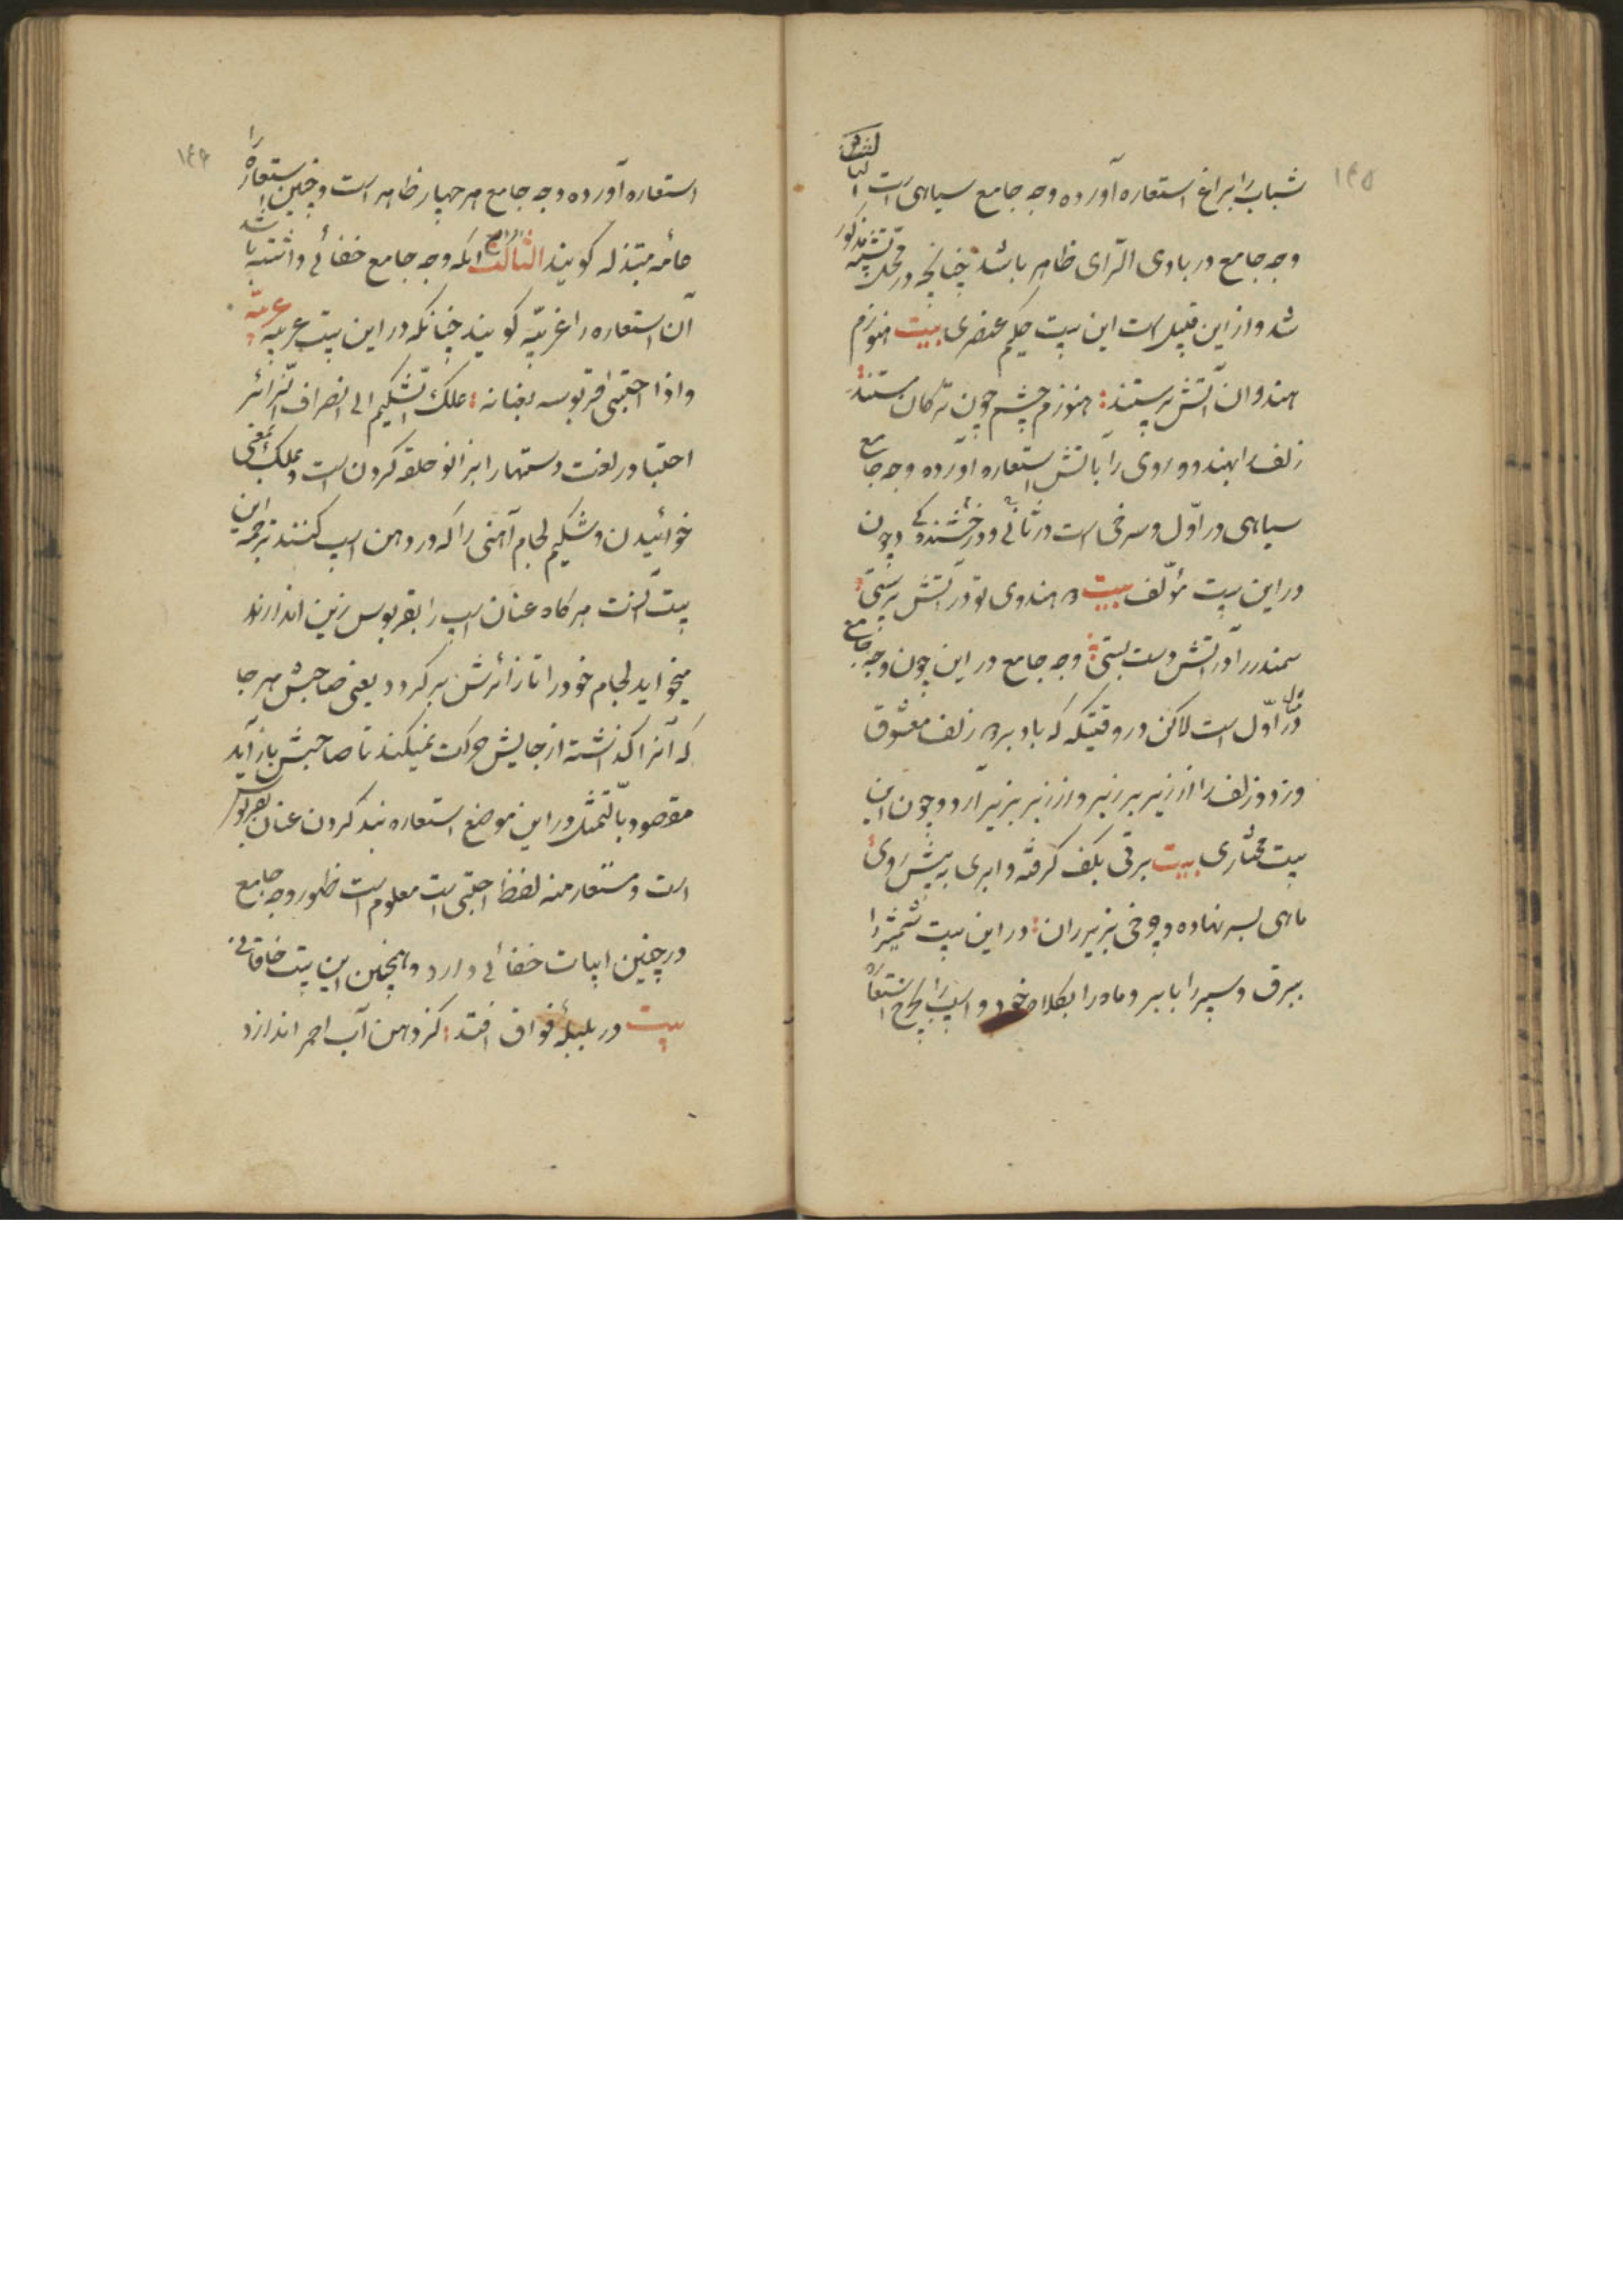 ۱۴۵
شباب را بزاغ استعاره آورده وجه جامع سیاهی است الثانی آنکه
وجه جامع در بادی الرّای ظاهر باشد چنانچه در محلّ تشبیه مذکور
شد و از این قبیل است این بیت حکیم عنصری بیت هنوزم
هندوان آتش پرستند هنوزم چشم چون ترکان مستند
زلف را بهندو و روی را بآتش استعاره آورده وجه جامع
سیاهی در اوّل و سرخی است در ثانی و درخشندگی و چون
در این بیت مؤلّف بیت هندوی تو در آتش پرستی
سمندر را در آتش دست بستی وجه جامع در این چون وجه جامع
در مثال اوّل است لاکن در وقتیکه که باد بر زلف معشوق
وزد و زلف را از زیر بر زبر و از زبر بزیر آرد و چون این
بیت مختاری بیت برقی بکف گرفته و ابری به پیش روی
ماهی بسر نهاده و چرخی بزیر ران در این بیت شمشیر را
ببرق و سپر را بابر و ماه را بکلاه خود و اسب را بچرخ استعاره
۱۴۶
استعاره آورده وجه جامع هر چهار ظاهر است و چنین استعاره را
عامّه مبتذله گویند الثالث آنکه وجه جامع خفائی داشته باشد
آن استعاره را غریبّه گویند چنانکه در این بیت عربیه عربیّه
و اذا احتبی قربوسه بعنانه علک الشّکیم الی انصراف الزّائر
احتبا در لغت دستها را بزانو حلقه کردن است و علک بمعنی
خوائیدن و شکیم لجام آهنی را که در دهن اسب کنند ترجمه این
بیت آنست هر کاه عنان اسب را بقربوس زین اندازند
میخواید لجام خود را تا زائرش بر گردد یعنی صاحبش هر جا
که آنرا گذاشته از جایش حرکت نمیکند تا صاحبش باز آید
مقصود بالتّمثّل در این موضع استعاره بند کردن عنان بقربوس
است و مستعار منه لفظ احتبی است معلوم است ظهور وجه جامع
در چنین ابیات خفائی دارد و همچنین این بیت خاقانی
بیت در بلبله فواق افتد کز دهن آب احمر اندازد